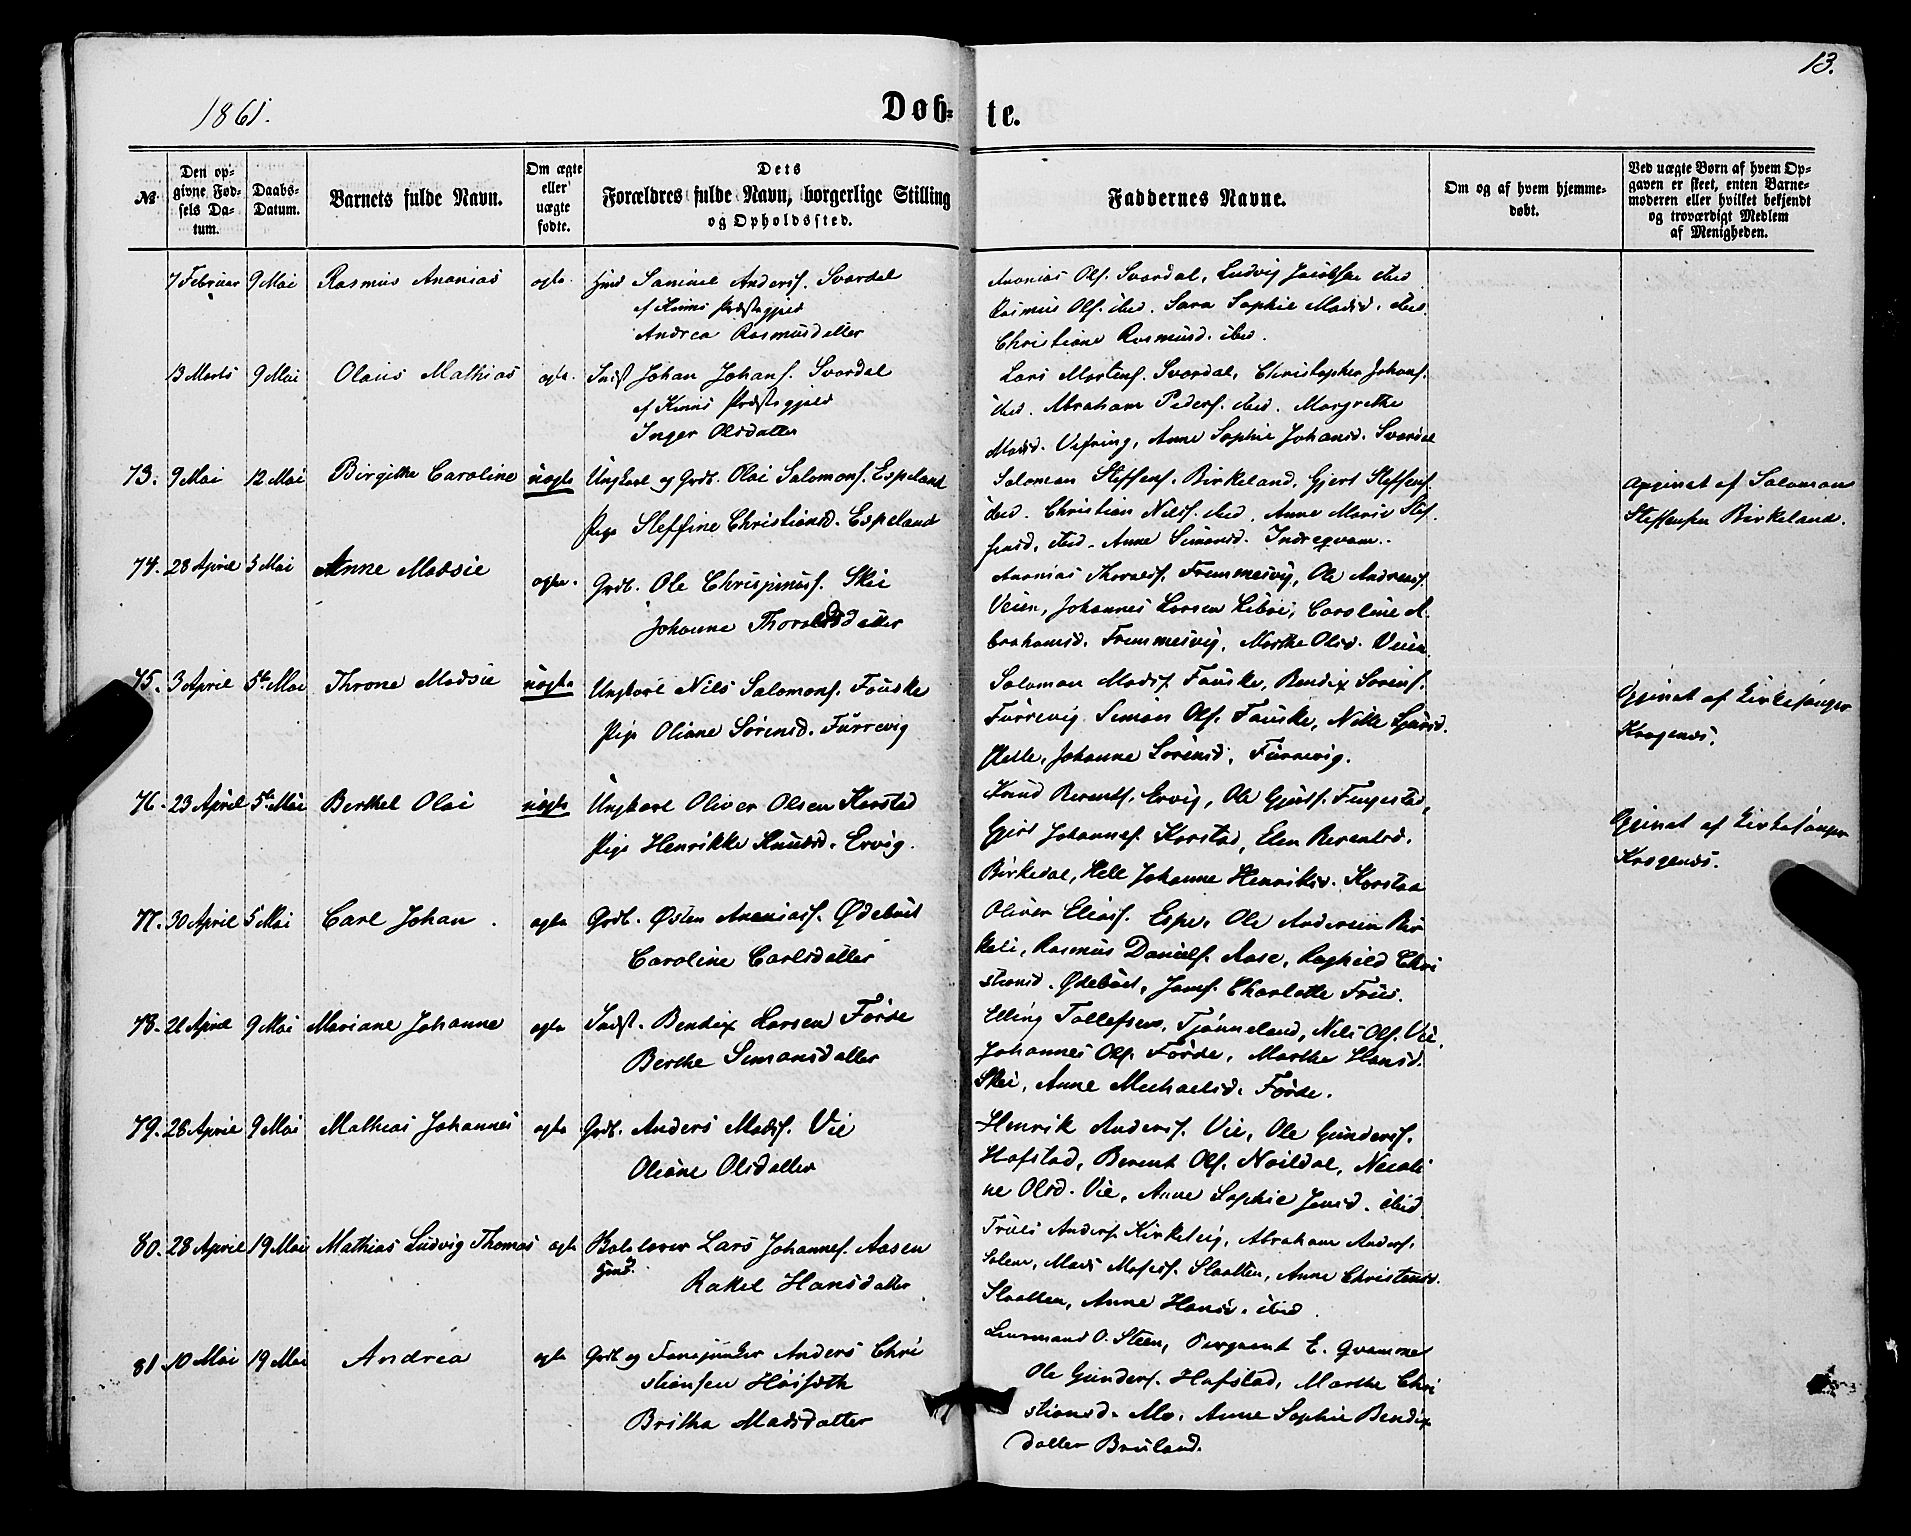 13.
1861.
Døb- te.
№
Den op-
givne Fød-
sels Da-
tum.
Daabs-
Datum.
Barnets fulde Navn.
Om ægte
eller
uægte
fødte.
Dets
Forældres fulde Navn, borgerlige Stilling
og Opholdssted.
Faddernes Navne.
Om og af hvem hjemme-
døbt.
Ved uægte Børn af hvem Op-
gaven er skeet, enten Barne-
moderen eller hvilket bekjendt
og troværdigt Medlem
af Menigheden.
7 Februar 9 Mai Rasmus Ananias ægte. Hmd Samuel Anders. Svardal
af Kinns Præstegjeld
Andrea Rasmusdatter
Ananias Ols. Svardal, Ludvig Jacobsen ibid
Rasmus Ols. ibid. Sara Sophie Madsd. ibid
Christiane Rasmusd. ibid.
13 Marts 9 Mai Olaus Mathias ægte. Indst Johan Johans. Svardal
af Kinns Præstegjeld
Inger Olsdatter
Lars Mortens. Svardal, Christopher Johans.
ibid. Abraham Peders. ibid. Margrethe
Madsd. Vefring, Anne Sophie Johansd. Svardal
73. 9 Mai 12 Mai Birgithe Caroline uægte Ungkarl og Grdb. Olai Salomons. Espeland
Pige Steffine Christiansd. Espeland
Salomon Steffens. Birkeland, Gjert Steffens.
ibid. Christian Nils. ibid, Anne Marie Stef-
fensd. ibid. Anne Simonsd. Indreqvam.
Opgivet af Salomon
Steffensen Birkeland.
74. 28 April 5 Mai Anne Madsie ægte. Grdb. Ole Chrispinus. Skei
Johanne Thoralsdatter
Ananias Thorals. Frammesvig, Ole Andreas.
Veien, Johannes Larsen Libei, Caroline A-
brahamsd. Frammesvig, Marthe Olsd. Veien.
75. 3 April 5te Mai Throne Madsie uægte Ungkarl Nils Salomons. Fauske
Pige Oliane Sørensd. Furrevig
Salomon Mads. Fauske, Bendix Sørens.
Furrevig. Simon Ols. Fauske, Nille
Helle, Johanne Sørensd. Furrevig.
Opgivet af Kirkesanger
Kragenes.
76. 23 April 5te Mai Berthel Olai uægte Ungkarl Oliver Olsen Karstad
Pige Henrikke Knudsd. Ervig.
Knud Berents. Ervig, Ole Gjerts. Fugestad,
Gjert Johannes. Karstad, Elen Berentsd.
Birkedal, Pelle Johanne Henriksd. Karstad
Opgivet af Kirkesanger
Kragenes.
77. 30 April 5 Mai Carl Johan. ægte Grdb. Østen Ananias. Ødebust
Caroline Carlsdatter
Oliver Elias. Espe, Ole Andersen Bir-
keli, Rasmus Daniels. Aase, Raghild Chri
stiansd. Ødebust, Jomf. Charlotte Friis.
78. 21 April 9 Mai Mariane Johanne ægte Indst. Bendix Larsen Førde
Berthe Simonsdatter
Elling Tollefsen, Tjønneland, Nils Ols. Vie,
Johannes Ols. Førde, Marthe Hansd.
Skei, Anne Michaelsd. Førde.
79. 26 April 9 Mai Mathias Johannes ægte Grdb. Anders Mads. Vie
Oliane Olsdatter
Henrik Anders. Vie, Ole Gunders.
Hafstad, Berent Ols. Naildal, Nicoli
ne Olsd. Vie, Anne Sophie Jensd. ibid
80. 28 April 19 Mai Mathias Ludvig Thomas ægte Lars Johannes. Aasen
Hmd.
Rakel Hansdatter
Truls Anders. Kirkeleig, Abraham Anders.
Solem, Mads Moses. Slaatten, Anne Christensd.
Slaatten, Anne Hansd. ibid.
81. 10 Mai 19 Mai Andrea ægte Grdb og Fanejunker Anders Chri
stiansen Høisæth
Britha Madsdatter
Lensmand O. Steen, Sergeant E. Qvamme
Ole Gunders. Hafstad, Marthe Chri
stiansd. Mo, Anne Sophie Bendix
datter Bruland.